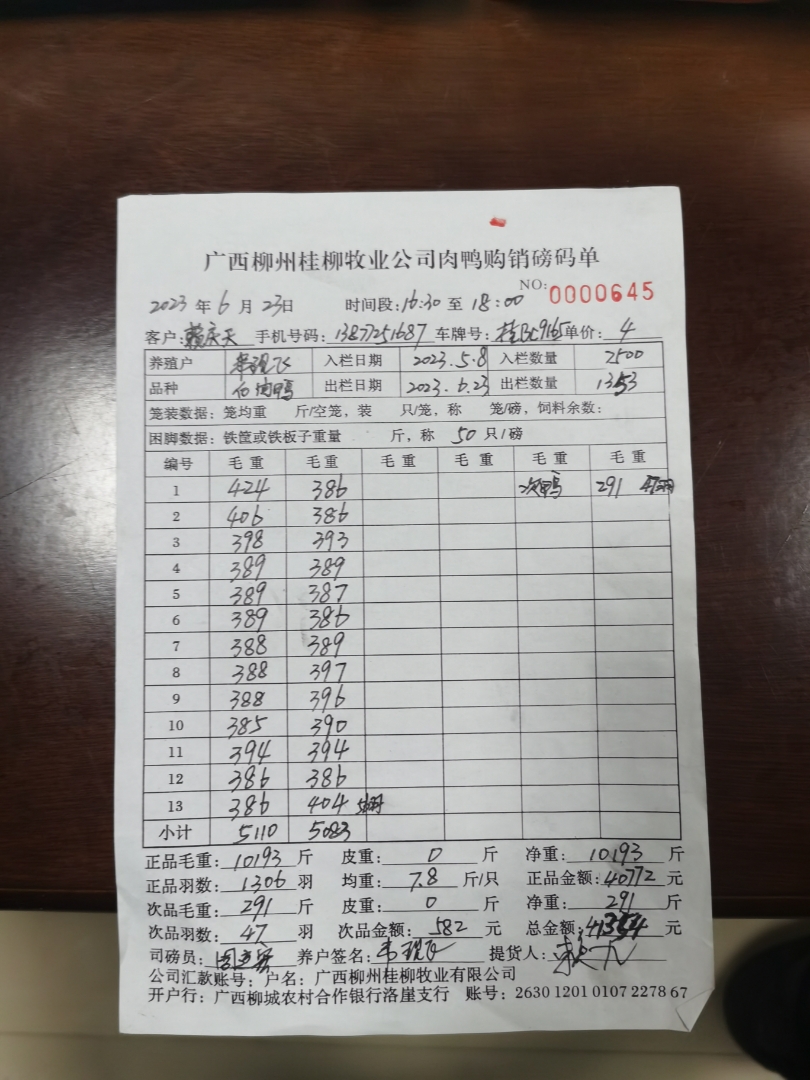 广西柳州桂柳牧业公司肉鸭购销磅码单
NO: 0000645
2023 年 6 月 23 日 时间段: 16:30 至 18:00
客户: 手机号码: 13877251687 车牌号: 单价: 4
养殖户 入栏日期 2023.5.8 入栏数量 2500
品种 出栏日期 2023.6.23 出栏数量 1353
笼装数据: 笼均重 斤/空笼, 装 只/笼, 称 笼/磅, 饲料余数:
困脚数据: 铁筐或铁板子重量 斤, 称 50 只/磅
编号 毛重 毛重 毛重 毛重 毛重 毛重
1 424 386 次鸭 291 47羽
2 406 386
3 398 393
4 389 389
5 389 387
6 389 386
7 388 389
8 388 397
9 388 396
10 385 390
11 394 394
12 386 386
13 386 404
小计 5110 5083
正品毛重: 10193 斤 皮重: 0 斤 净重: 10193 斤
正品羽数: 1306 羽 均重: 7.8 斤/只 正品金额: 40772 元
次品毛重: 291 斤 皮重: 0 斤 净重: 291 斤
次品羽数: 47 羽 次品金额: 582 元 总金额: 41354 元
司磅员: 养户签名: 提货人:
公司汇款账号: 户名: 广西柳州桂柳牧业有限公司
开户行: 广西柳城农村合作银行洛崖支行 账号: 2630 1201 0107 2278 67